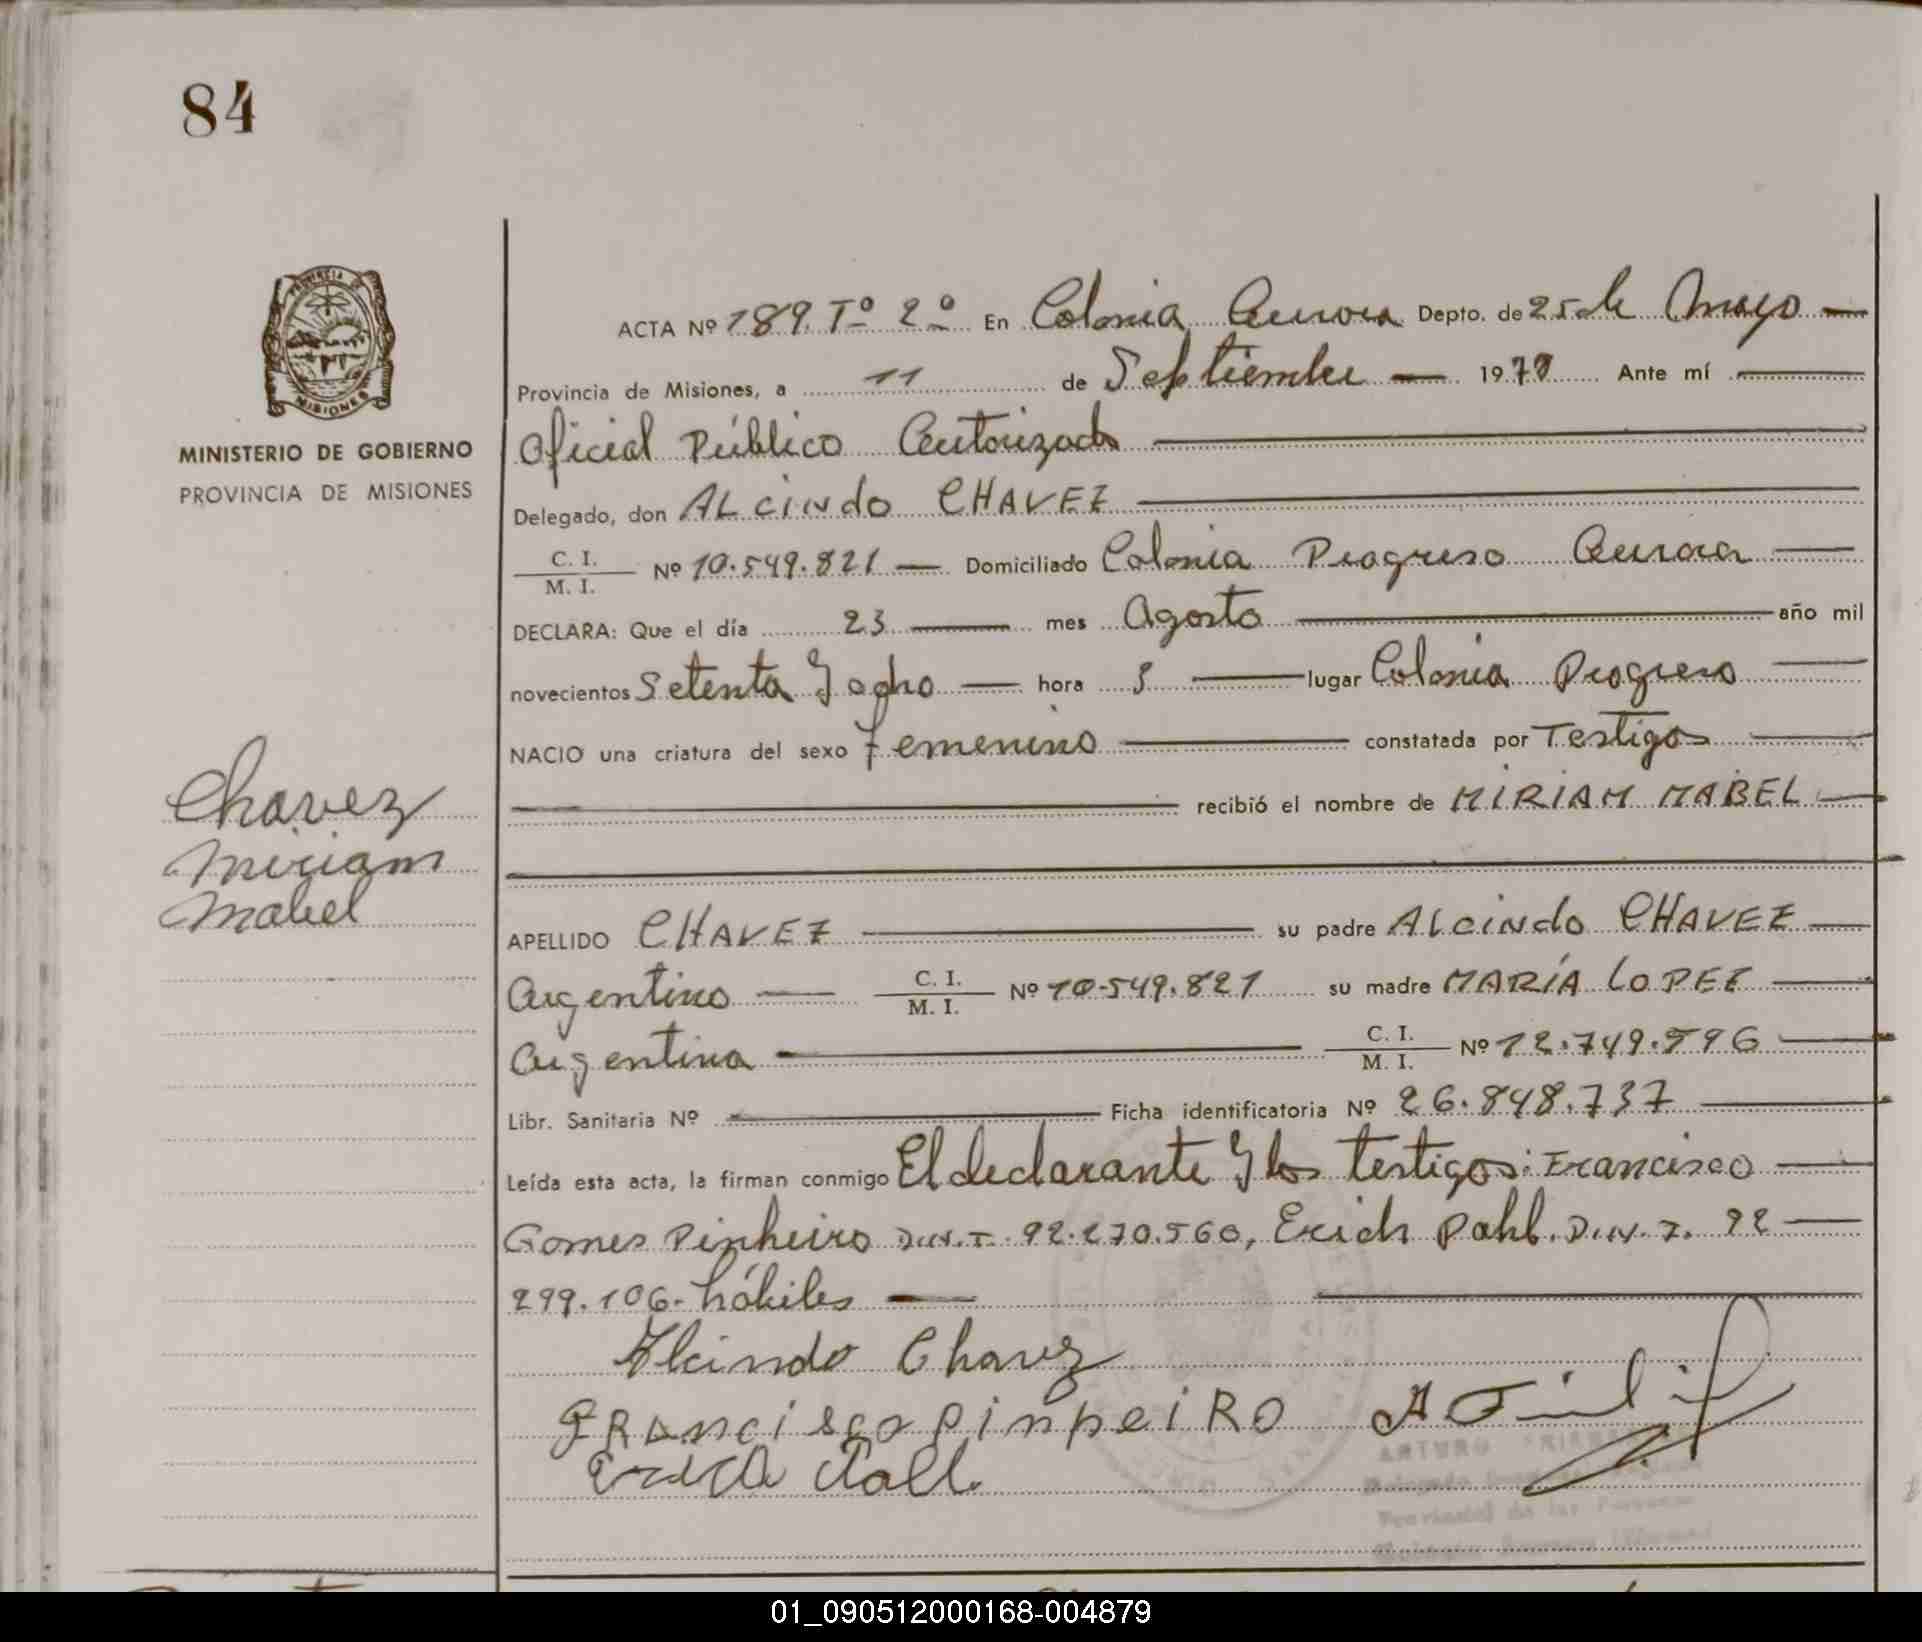 84
PROVINCIA DE
MISIONES
MINISTERIO DE GOBIERNO
PROVINCIA DE MISIONES
Chavez
Miriam
Mabel
ACTA Nº 189. Tº 2º En Colonia Aurora Depto. de 25 de Mayo
Provincia de Misiones, a 11 de Septiembre 1978 Ante mí
Oficial Público Autorizado
Delegado, don ALCINDO CHAVEZ
C. I.
M. I. Nº 10.549.821 Domiciliado Colonia Progreso Aurora
DECLARA: Que el día 23 mes Agosto año mil
novecientos Setenta y ocho hora 3 lugar Colonia Progreso
NACIO una criatura del sexo femenino constatada por Testigos
recibió el nombre de MIRIAM MABEL
APELLIDO CHAVEZ su padre ALCINDO CHAVEZ
Argentino C. I.
M. I. Nº 10.549.821 su madre MARÍA LOPEZ
Argentina C. I.
M. I. Nº 12.749.596
Libr. Sanitaria Nº Ficha identificatoria Nº 26.848.737
Leída esta acta, la firman conmigo El declarante y los testigos: Francisco
Gomes Pinheiro D.N.I. 92.270.560, Erich Pahl. D.N.I. 92
299.106- hábiles
Alcindo Chavez
FRANCISCO PINHEIRO
ARTURO
Provincial de las Personas
01_090512000168-004879